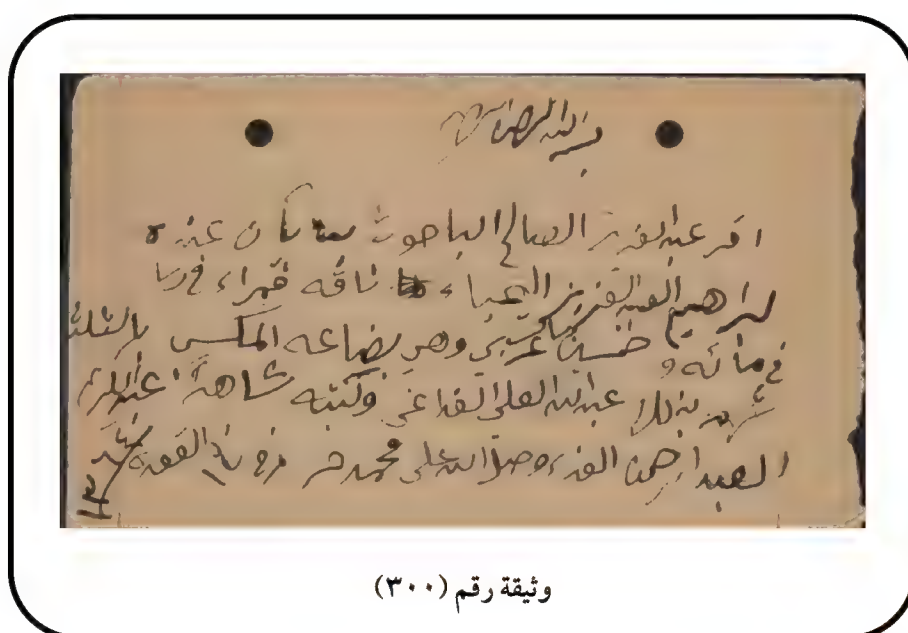 بسم الله الرحمن الرحيم
اقر عبدالعزيز الصالح الباحوث بان عنده
لبراهيم العبدالعزيز اليحياء ناقه قمراء
في مائه وخمسين عربي وهي بضاعه المكسب بالثلث
شهد بذلك عبدالله العلي وكتبه شاهدا عبدالكريم
العبدالرحمن وصلى الله على محمد حرر في القعدة
وثيقة رقم (٣٠٠)